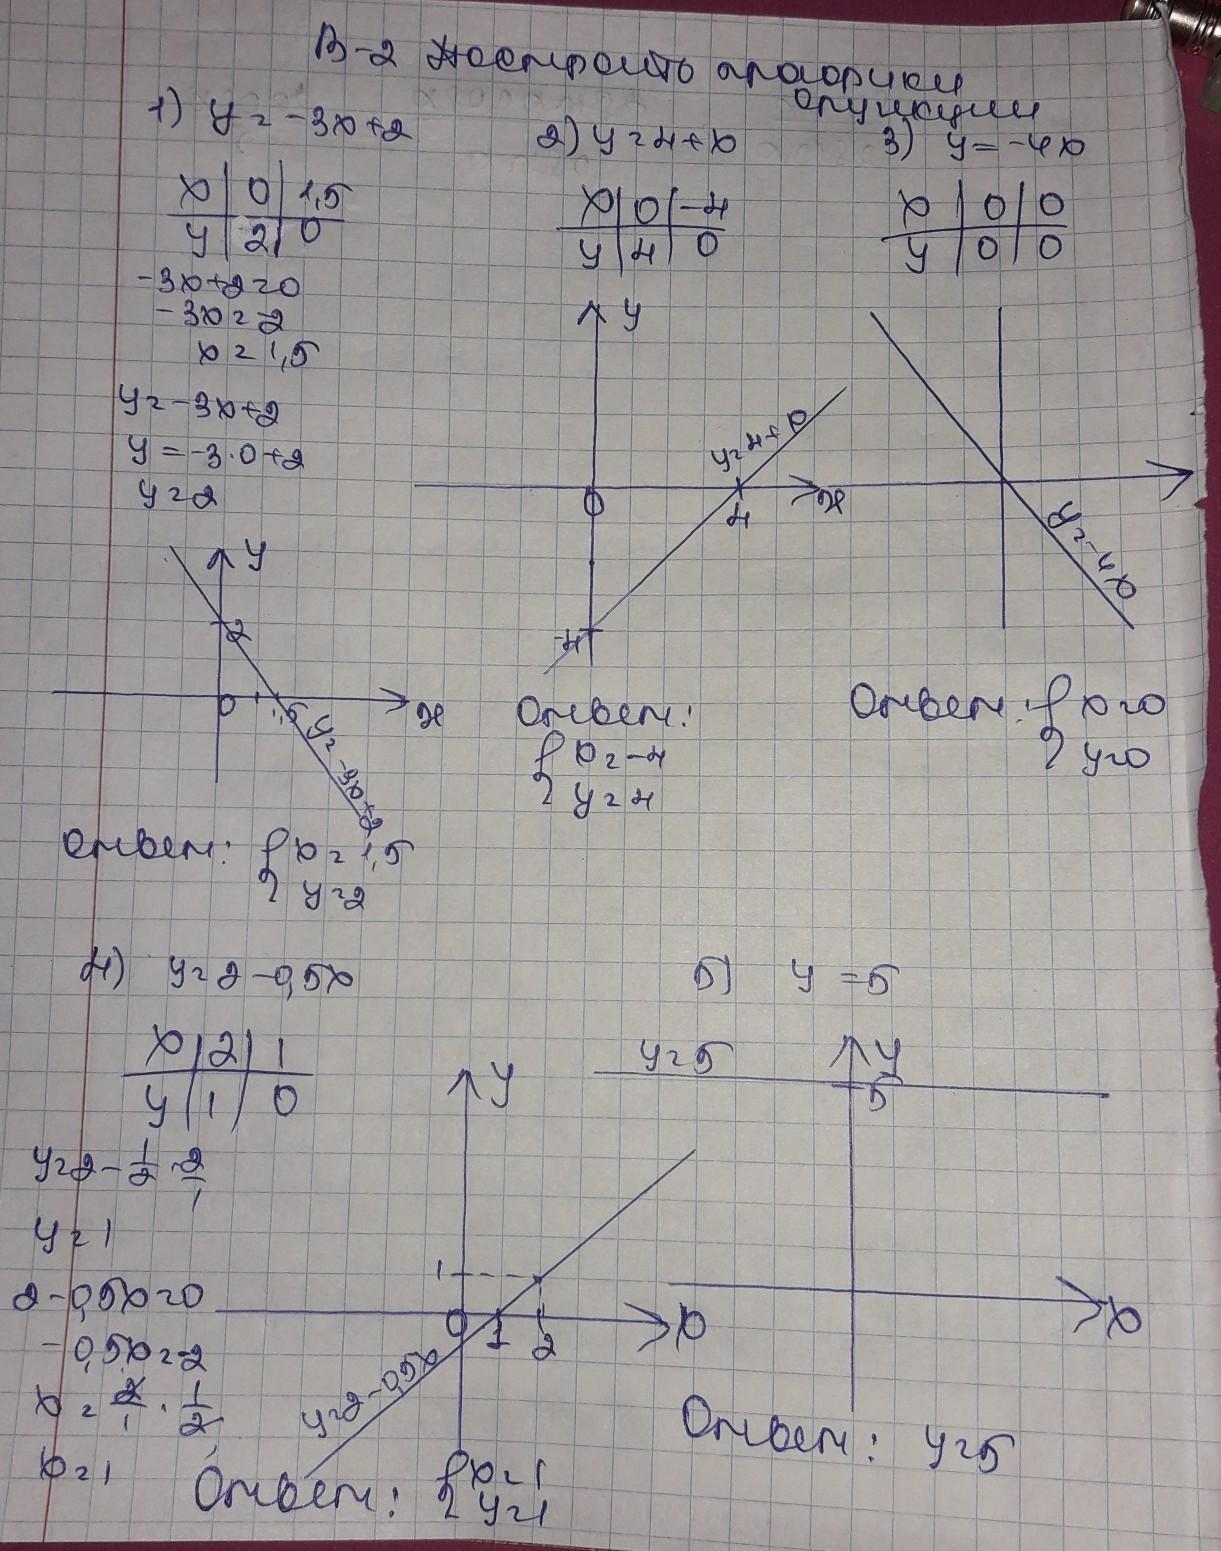 В-2 Построить графики
функции
1) y = -3x+2
x | 0 | 1,5
y | 2 | 0
-3x+2=0
-3x=-2
x=1,5
y=-3x+2
y=-3·0+2
y=2
y
2
0
1,5
x
y=-3x+2
Ответ: { x=1,5
y=2
2) y=4+x
x | 0 | -4
y | 4 | 0
y
y=4+x
0
4
x
-4
Ответ:
{ x=-4
y=4
3) y=-4x
x | 0 | 0
y | 0 | 0
y=-4x
Ответ: { x=0
y=0
4) y=2-0,5x
x | 2 | 1
y | 1 | 0
y=2-1/2·2/1
y=1
2-0,5x=0
-0,5x=-2
x=2/1·1/2
x=1
y
1
0
1
2
x
y=2-0,5x
Ответ: { x=1
y=1
5) y=5
y=5
y
5
x
Ответ: y=5